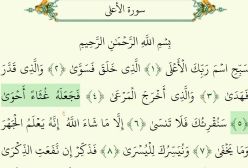 سورة الأعلى
بِسْمِ اللَّهِ الرَّحْمَٰنِ الرَّحِيمِ
سَبِّحِ اسْمَ رَبِّكَ الْأَعْلَى ﴿١﴾ الَّذِي خَلَقَ فَسَوَّىٰ ﴿٢﴾ وَالَّذِي قَدَّرَ
فَهَدَىٰ ﴿٣﴾ وَالَّذِي أَخْرَجَ الْمَرْعَىٰ ﴿٤﴾ فَجَعَلَهُ غُثَاءً أَحْوَىٰ
﴿٥﴾ سَنُقْرِئُكَ فَلَا تَنسَىٰ ﴿٦﴾ إِلَّا مَا شَاءَ اللَّهُ إِنَّهُ يَعْلَمُ الْجَهْرَ
وَمَا يَخْفَىٰ ﴿٧﴾ وَنُيَسِّرُكَ لِلْيُسْرَىٰ ﴿٨﴾ فَذَكِّرْ إِن نَّفَعَتِ الذِّكْرَىٰ